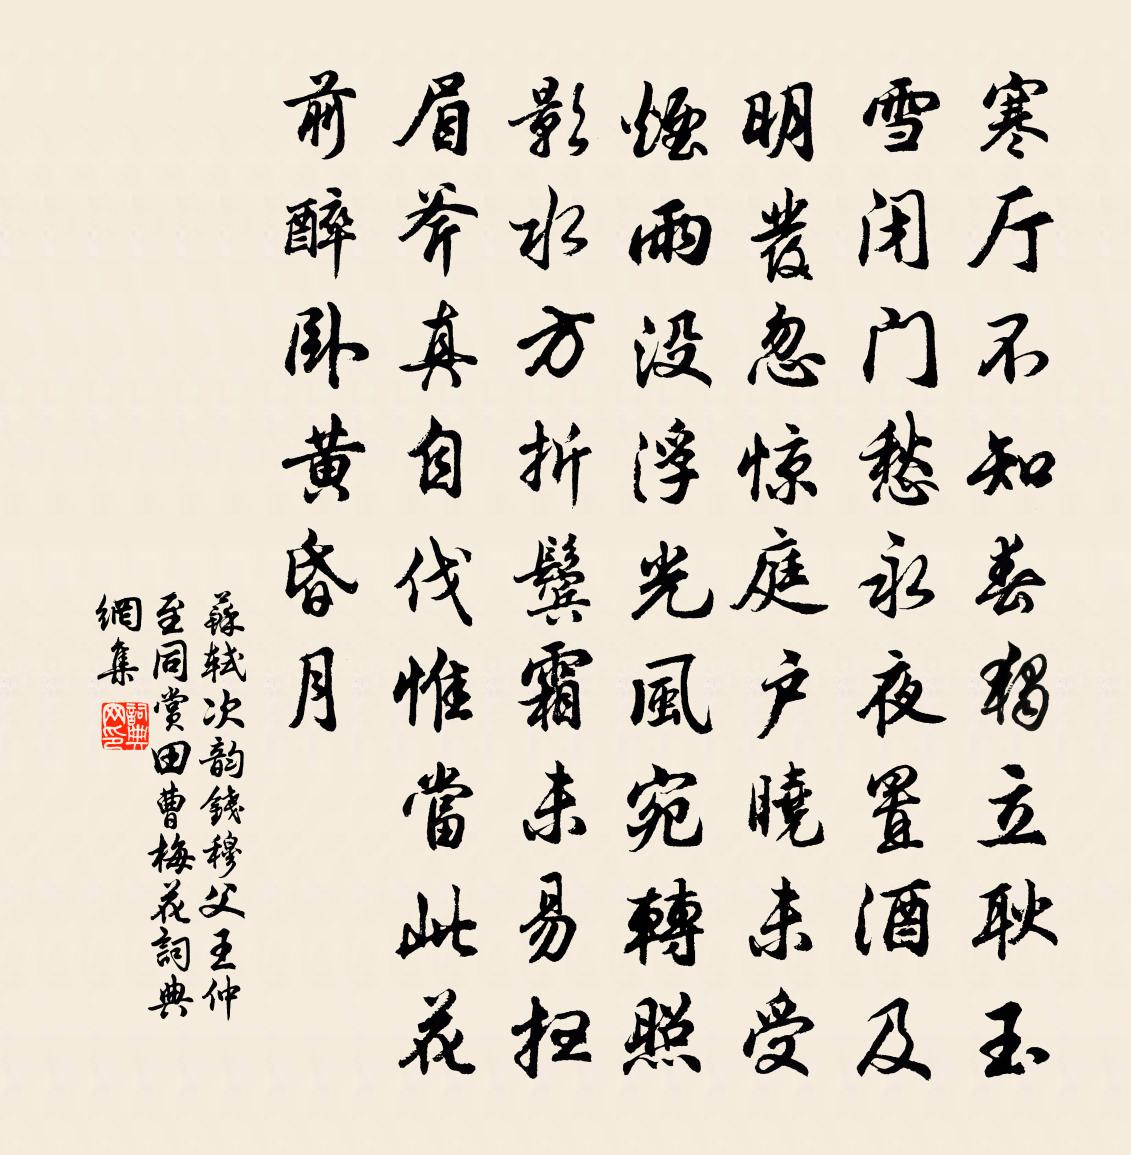 寒厅不知春独立耿玉
雪闭门愁永夜置酒及
明發忽惊庭户曉未受
煙雨没浮光風宛轉照
影水方折鬓霜未易扫
眉斧真自伐惟當此花
前醉卧黄昏月
蘇轼次韵錢穆父王仲
至同赏田曹梅花詞典
網集
詞典网印